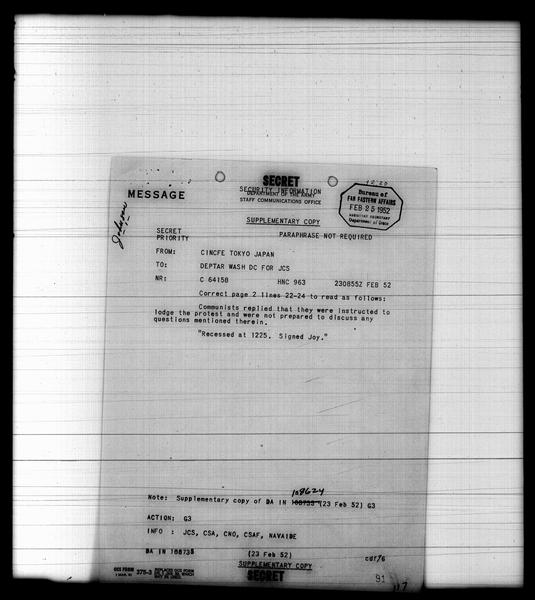 12-20
SECRET
SECURITY INFORMATION
DEPARTMENT OF THE ARMY
STAFF COMMUNICATIONS OFFICE
MESSAGE
Bureau of
FAR EASTERN AFFAIRS
FEB 25 1952
ASSISTANT SECRETARY
Department of State
Johnson
SUPPLEMENTARY COPY
SECRET
PRIORITY
PARAPHRASE NOT REQUIRED
FROM: CINCFE TOKYO JAPAN
TO: DEPTAR WASH DC FOR JCS
NR: C 64158 HNC 963 230855Z FEB 52
Correct page 2 lines 22-24 to read as follows:
Communists replied that they were instructed to
lodge the protest and were not prepared to discuss any
questions mentioned therein.
"Recessed at 1225. Signed Joy."
108624
Note: Supplementary copy of DA IN 108735 (23 Feb 52) G3
ACTION: G3
INFO : JCS, CSA, CNO, CSAF, NAVAIDE
DA IN 108735 (23 Feb 52) cdf/6
SUPPLEMENTARY COPY
SECRET
OCS FORM 375-3 REPLACES OCS FORM
MAY BE USED.
91
17